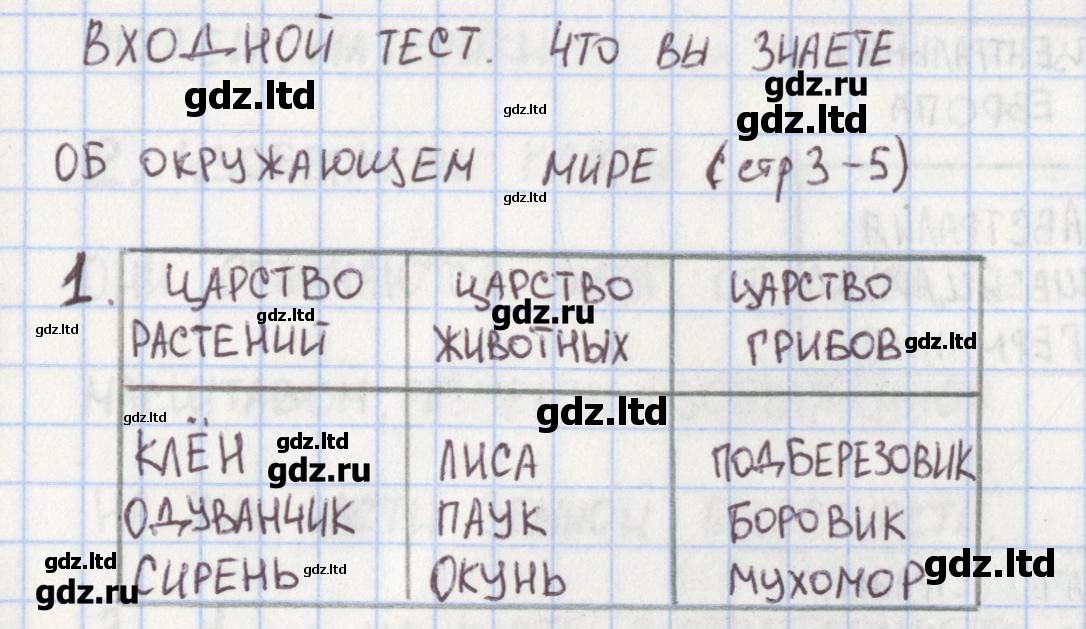 ВХОДНОЙ ТЕСТ. ЧТО ВЫ ЗНАЕТЕ
gdz.ltd gdz.ltd gdz.ru
gdz.ltd
ОБ ОКРУЖАЮЩЕМ МИРЕ (стр 3-5)
gdz.ltd
1. ЦАРСТВО ЦАРСТВО ЦАРСТВО
gdz.ltd gdz.ltd gdz.ru
РАСТЕНИЙ ЖИВОТНЫХ ГРИБОВ gdz.ltd
gdz.ltd gdz.ltd
КЛЁН gdz.ltd ЛИСА ПОДБЕРЕЗОВИК
gdz.ru
ОДУВАНЧИК ПАУК БОРОВИК
gdz.ltd СИРЕНЬ gdz.ltd ОКУНЬ МУХОМОР gdz.ltd
gdz.ru